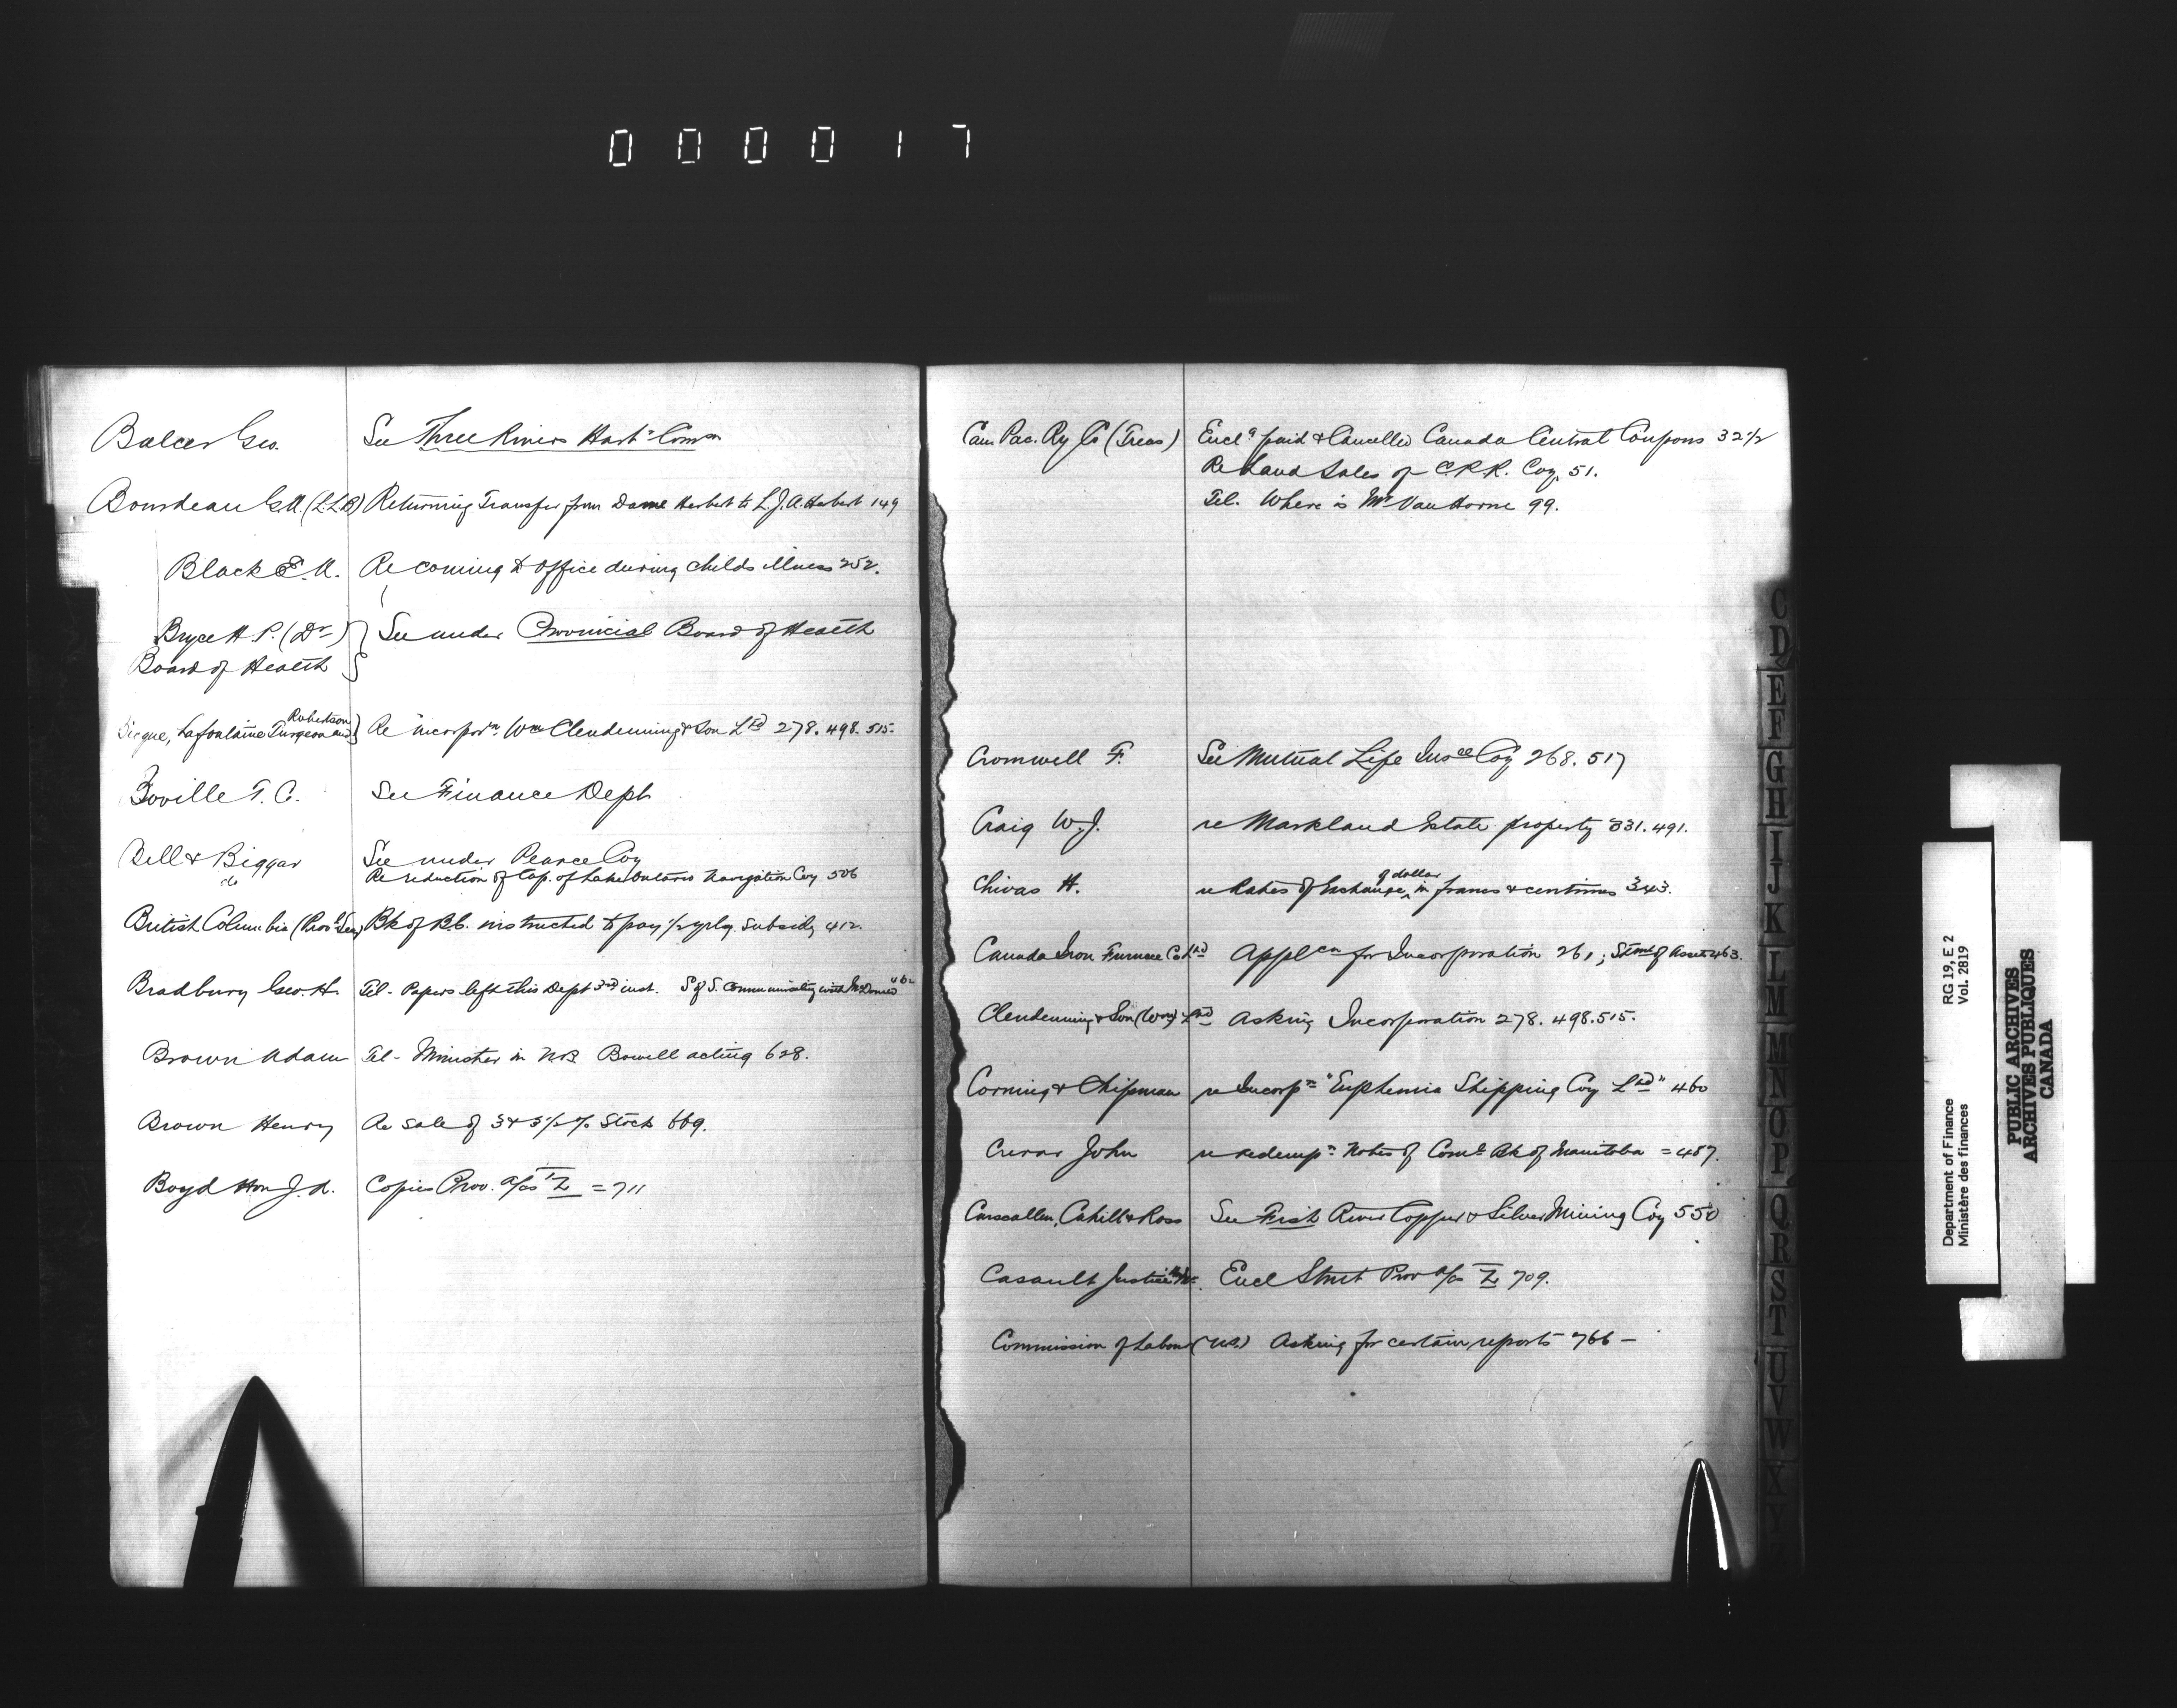 000017
Balcer Geo. See Three Rivers Harb. Comsn
Bourdeau G.A. (L.L.B) Returning Transfer from Dame Herbert to L.J.A. Herbert 149
Black E.A. Re coming to office during childs illness 252.
Bryce H.P. (Dr) See under Provincial Board of Health
Board of Health
Beique, Lafontaine Turgeon and Robertson Re incorporn Wm Clendenning & Son Ltd 278. 498. 515.
Boville T.C. See Finance Dept
Bell & Biggar See under Pearce Coy
do Re reduction of Cap. of Lake Ontario Navigation Coy 506
British Columbia (Provl Secy) Bk of B.C. instructed to pay 1/2 yrly. subsidy 412.
Bradbury Geo. H. Tel- Papers left this Dept 3rd inst. S of S. Communicating with
Brown Adam Tel- Minister in N.B. Bowell acting 628.
Brown Henry Re sale of 3 & 3 1/2 % Stock 669.
Boyd Hon J. A. Copies Prov. a/cs = 711
Can. Pac. Ry Co (Treas) Encl'g paid & Cancelled Canada Central Coupons 32 1/2
Re Land Sales of C.P.R. Coy. 51.
Tel. Where is Mr Van Horne 99.
Cromwell F. See Mutual Life Insce Coy 268. 517
Craig W.J. re Markland Estate property 331. 491.
Chivas H. re Rates of Exchange of dollar in francs & centimes 343.
Canada Iron Furnace Co Ltd Applcn for Incorporation 261; Stmt of Assets 463.
Clendenning & Son (Wm) Ltd Asking Incorporation 278. 498. 515.
Corning & Chipman re Incorpn "Euphemia Shipping Coy Ltd" 460
Crerar John re redempn Notes of Coml Bk of Manitoba = 487.
Carscallen, Cahill & Ross See Fish River Copper & Silver Mining Coy 550
Casault Justice Encl Stmt Prov a/cs 709.
Commission of Labour (U.S.) Asking for certain reports 766 -
C
D
E
F
G
H
I
J
K
L
M
N
O
P
Q
R
S
T
U
V
W
X
Y
Department of Finance
Ministère des finances
RG 19, E 2
Vol. 2819
PUBLIC ARCHIVES
ARCHIVES PUBLIQUES
CANADA